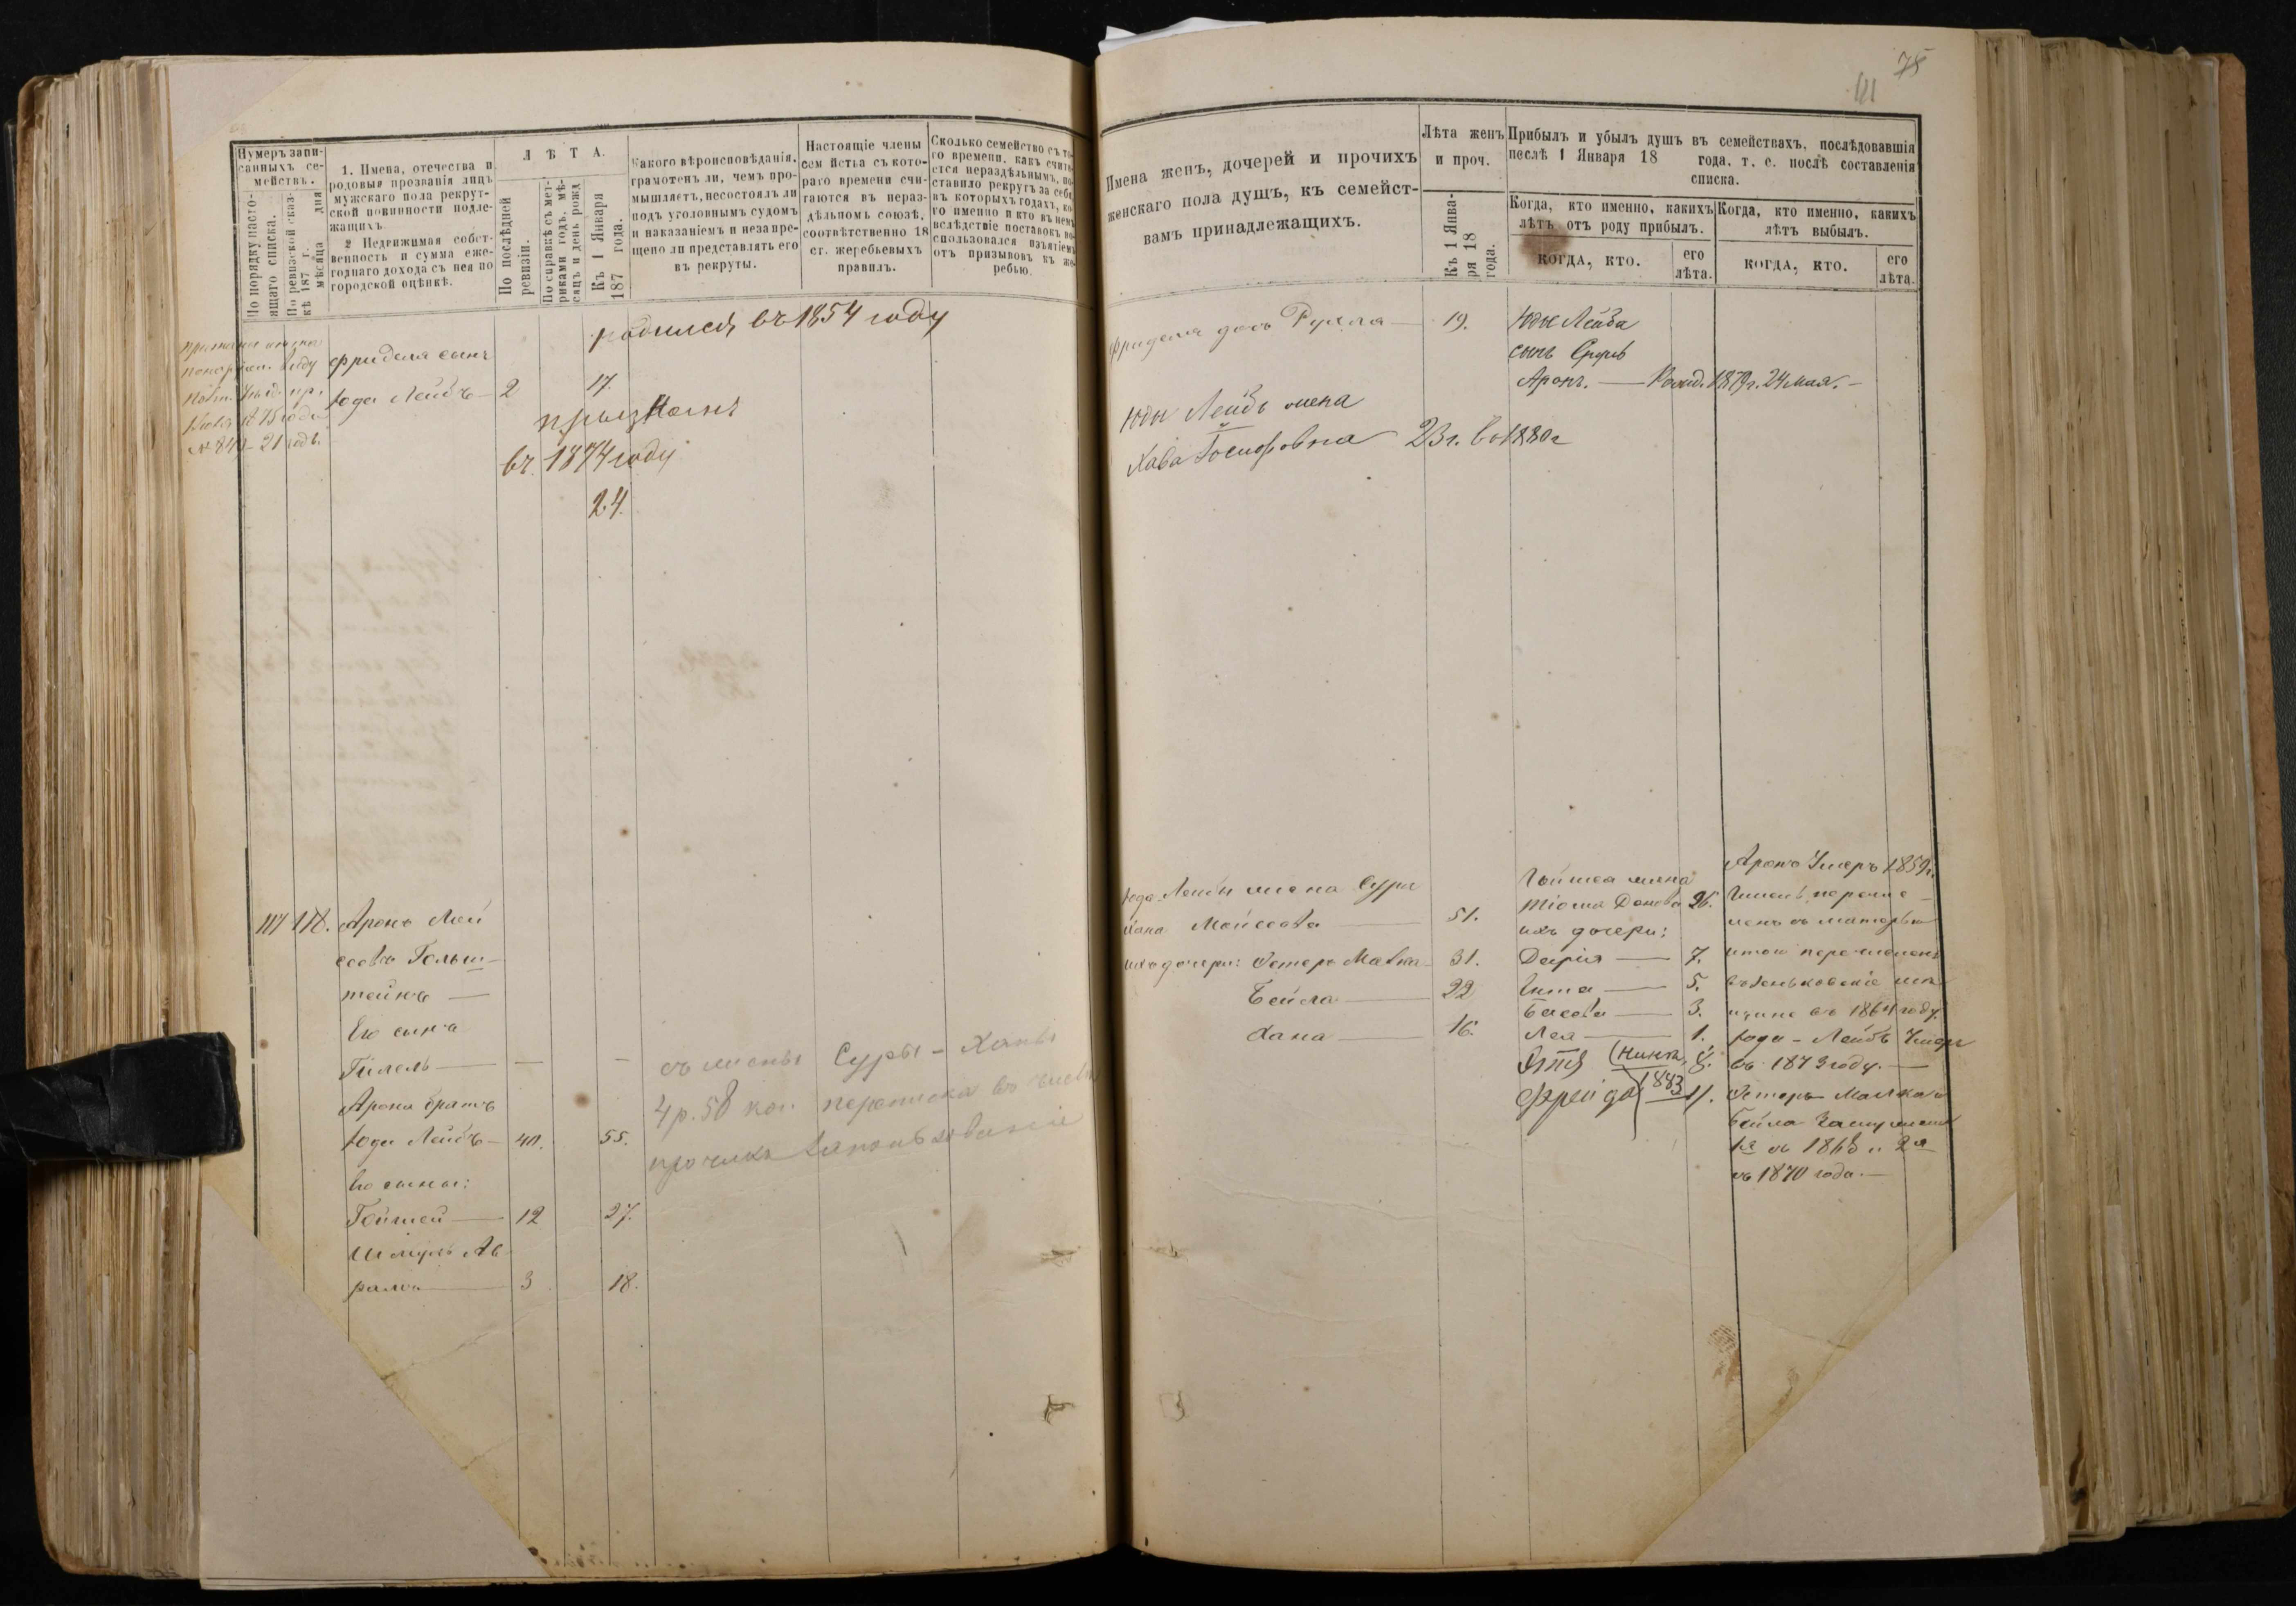 Нумеръ запи-
санныхъ се-
мействъ.
По порядку насто-
ящаго списка.
По ревизской сказ-
кѣ 187 г. дня
мѣсяца
1. Имена, отечества и
родовыя прозванія лицъ
мужскаго пола рекрут-
ской повинности подле-
жащихъ.
2 Недвижимая собст-
венность и сумма еже-
годнаго дохода съ нея по
городской оцѣнкѣ.
ЛѢТА.
По послѣдней
ревизіи.
По справкѣ съ мет-
риками годъ, мѣ-
сяцъ и день рожд
Къ 1 Января
187 года.
Какого вѣроисповѣданія,
грамотенъ ли, чемъ про-
мышляетъ, несостоялъ ли
подъ уголовнымъ судомъ
и наказаніемъ и незапре-
щено ли представлять его
въ рекруты.
Настоящіе члены
сем йства съ кото-
раго времени счи-
таются въ нераз-
дѣльномъ союзѣ,
соотвѣтственно 18
ст. жеребьевыхъ
правилъ.
Сколько семейство съ то-
го времени, какъ счита-
ется нераздѣльнымъ, по-
ставило рекрутъ за себя,
въ которыхъ годахъ, ко-
го именно и кто въ немъ
вслѣдствіе поставокъ во-
спользовался изъятіемъ
отъ призывовъ къ же-
ребью.
родился въ 1854 году
Фриделя сынъ
Юда Лейбъ — 2 17.
№ 849 — 21 годъ.
призванъ
въ 1874 году
24.
111 118. Аронъ Мой
сеевъ Гольш-
тейнъ —
Его сынъ
Гилель — — —
Арона братъ
Юда Лейбъ — 40. 55.
Его сыны:
Гойшей — 12 27.
Шмуль Аб
рамъ — 3 18.
съ жены Суры - Ханы
4 р. 58 коп.
75
Имена женъ, дочерей и прочихъ
женскаго пола душъ, къ семейст-
вамъ принадлежащихъ.
Лѣта женъ
и проч.
Къ 1 Янва-
ря 18
года.
Прибылъ и убылъ душъ въ семействахъ, послѣдовавшія
послѣ 1 Января 18 года, т. е. послѣ составленія
списка.
Когда, кто именно, какихъ
лѣтъ отъ роду прибылъ.
КОГДА, КТО.
его
лѣта.
Когда, кто именно, какихъ
лѣтъ выбылъ.
КОГДА, КТО.
его
лѣта.
Фриделя дочь Рухля — 19.
Юды Лейба
сынъ
Аронъ. — Рожд. 1879 г. 24 мая. —
Юды Лейбы жена
Хава Госифовна 23 г. въ 1880 г
Юда-Лейбы жена Сура
Хана Мойсеева — 51.
ихъ дочери: Эстеръ Малка — 31.
Бейла — 22
Хана — 16.
Гойшея жена
26.
ихъ дочери:
7.
5.
Басева — 3.
Лея — 1.
8.
Фрейда 1883 11.
Аронъ Умеръ 1859 г.
въ 1864 году.
Юда - Лейбъ Умеръ
въ 1873 году. —
Эстеръ Малка и
Бейла Замужемъ
1я въ 1868 и 2я
въ 1870 года. —